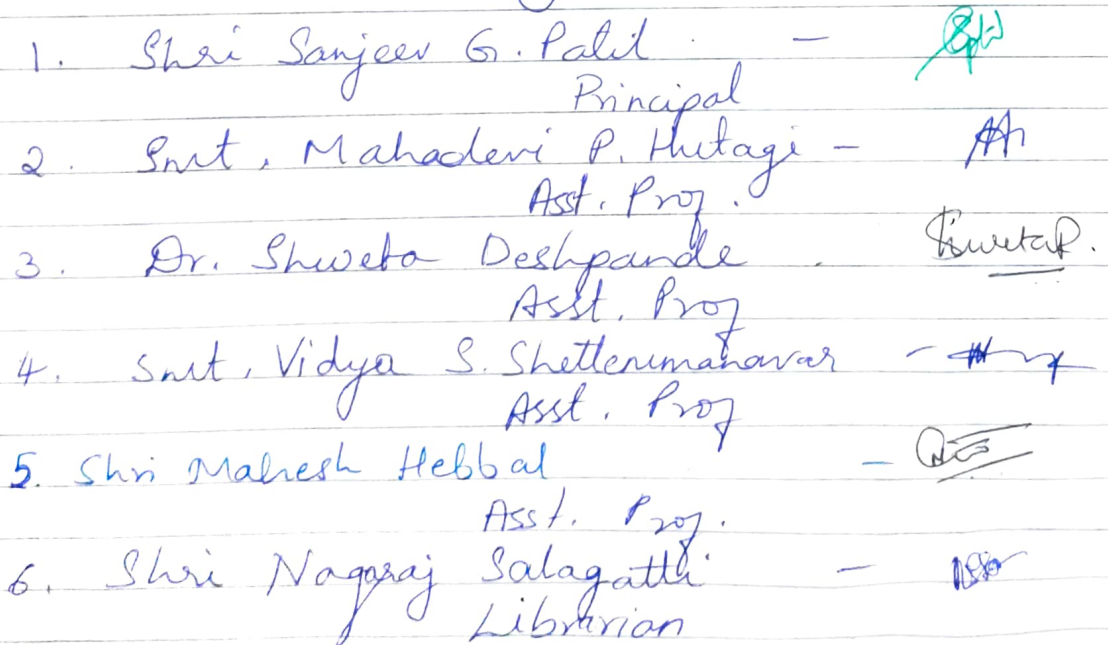 1. Shri Sanjeev G. Patil -
Principal
2. Smt. Mahadevi P. Hutagi -
Asst. Prof.
3. Dr. Shweta Deshpande ShwetaP.
Asst. Prof
4. Smt. Vidya S. -
Asst. Prof
5. Shri Mahesh Hebbal -
Asst. Prof.
6. Shri Nagaraj Salagatti -
Librarian